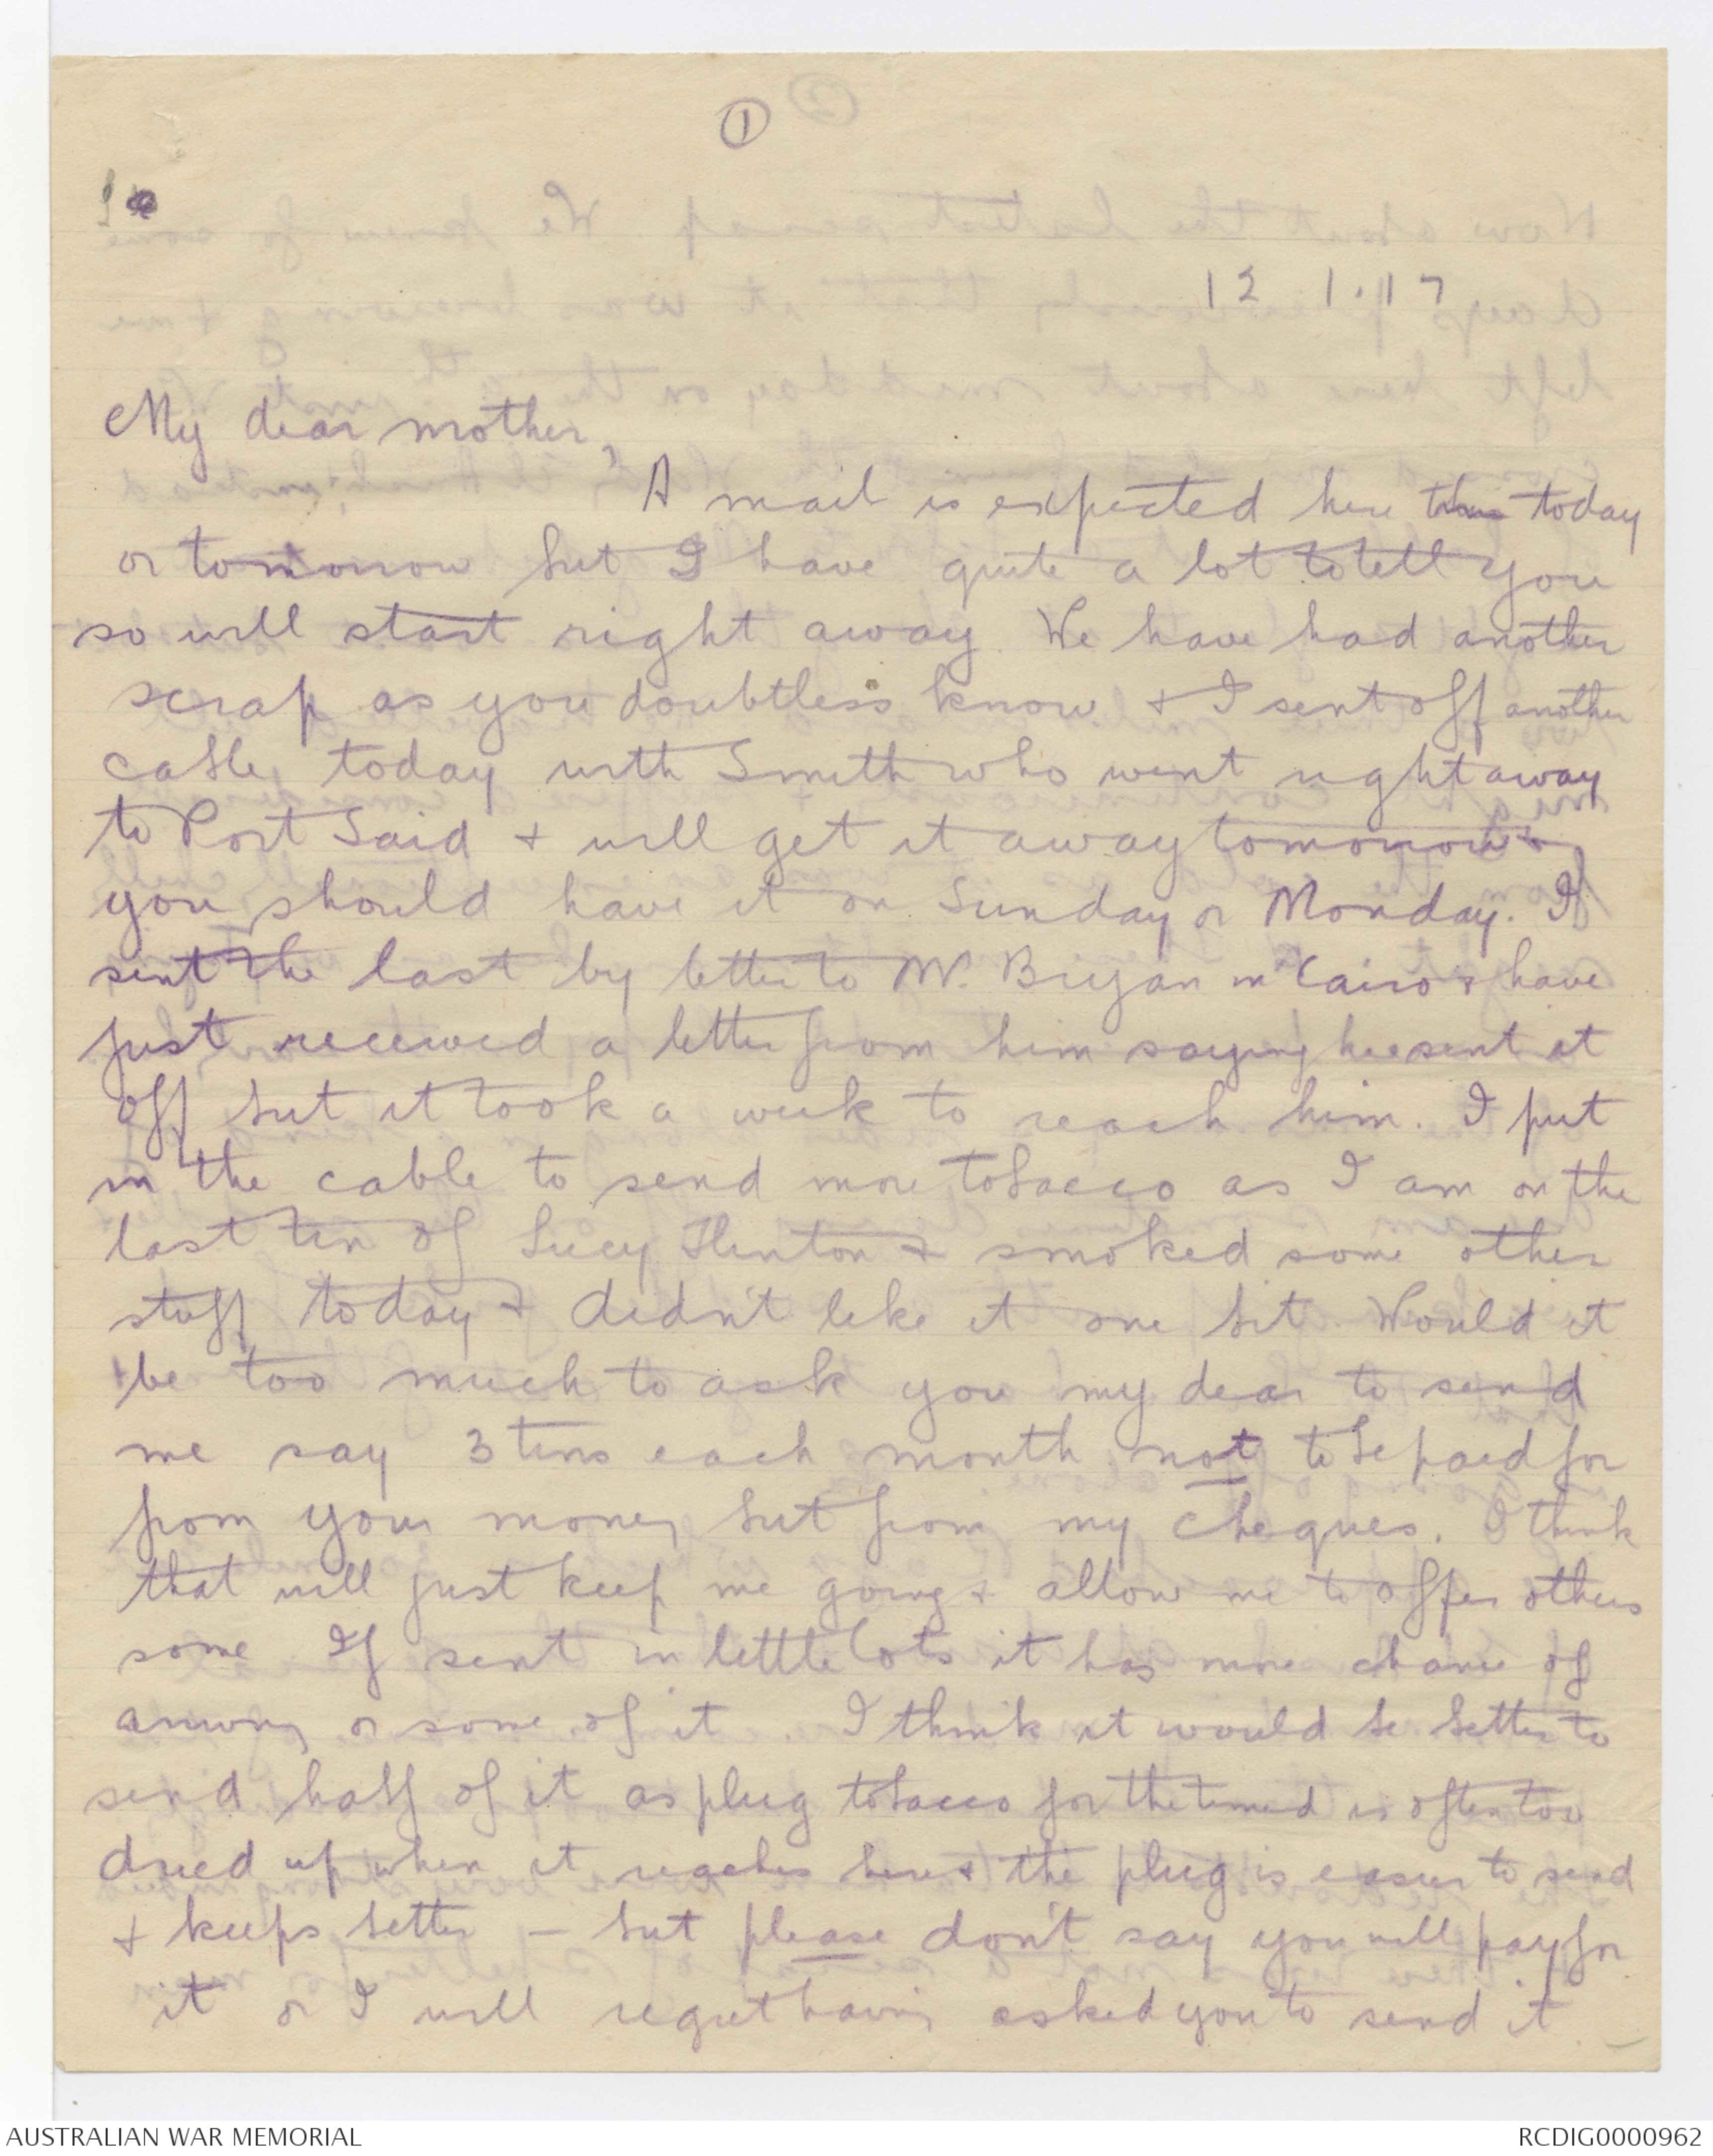 ①
12 1.17
My dear mother,
A mail is expected here today
or tomorrow but I have quite a lot to tell you
so will start right away. We have had another
scrap as you doubtless know & I sent off another
cable today with Smith who went right away
to Port Said & will get it away tomorrow &
you should have it on Sunday or Monday. I
sent the last by letter to W. Bryan in Cairo & have
just received a letter from him saying he sent it
off but it took a week to reach him. I put
in the cable to send more tobacco as I am on the
last tin of Lucy Hinton & smoked some other
stuff today & didn't like it one bit. Would it
be too much to ask you my dear to send
me say 3 tins each month not to be paid for
from your money but from my cheques. I think
that will just keep me going & allow me to offer others
some If sent in little lots it has more chance of
arriving or some of it. I think it would be better to
send half of it as plug tobacco for the tinned is often too
dried up when it reaches here & the plug is easier to send
& keeps better - but please don't say you will pay for
it or I will regret having asked you to send it.
AUSTRALIAN WAR MEMORIAL
RCDIG0000962